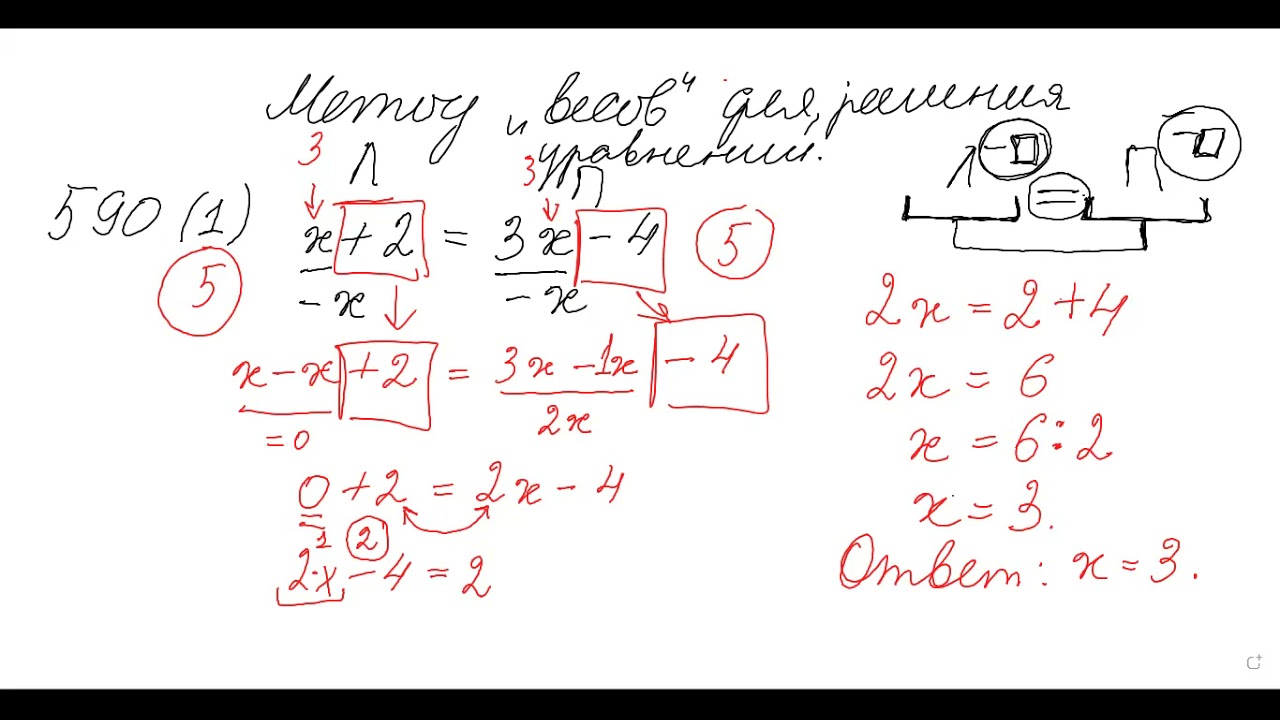 Метод „весов“ для решения
уравнений.
590 (1)
3 Л 3 П
x + 2 = 3x - 4
5 5
- x - x
x - x + 2 = 3x - 1x - 4
= 0 2x
0 + 2 = 2x - 4
1 2
2·x - 4 = 2
Л - □ = П - □
2x = 2 + 4
2x = 6
x = 6 : 2
x = 3.
Ответ: x = 3.